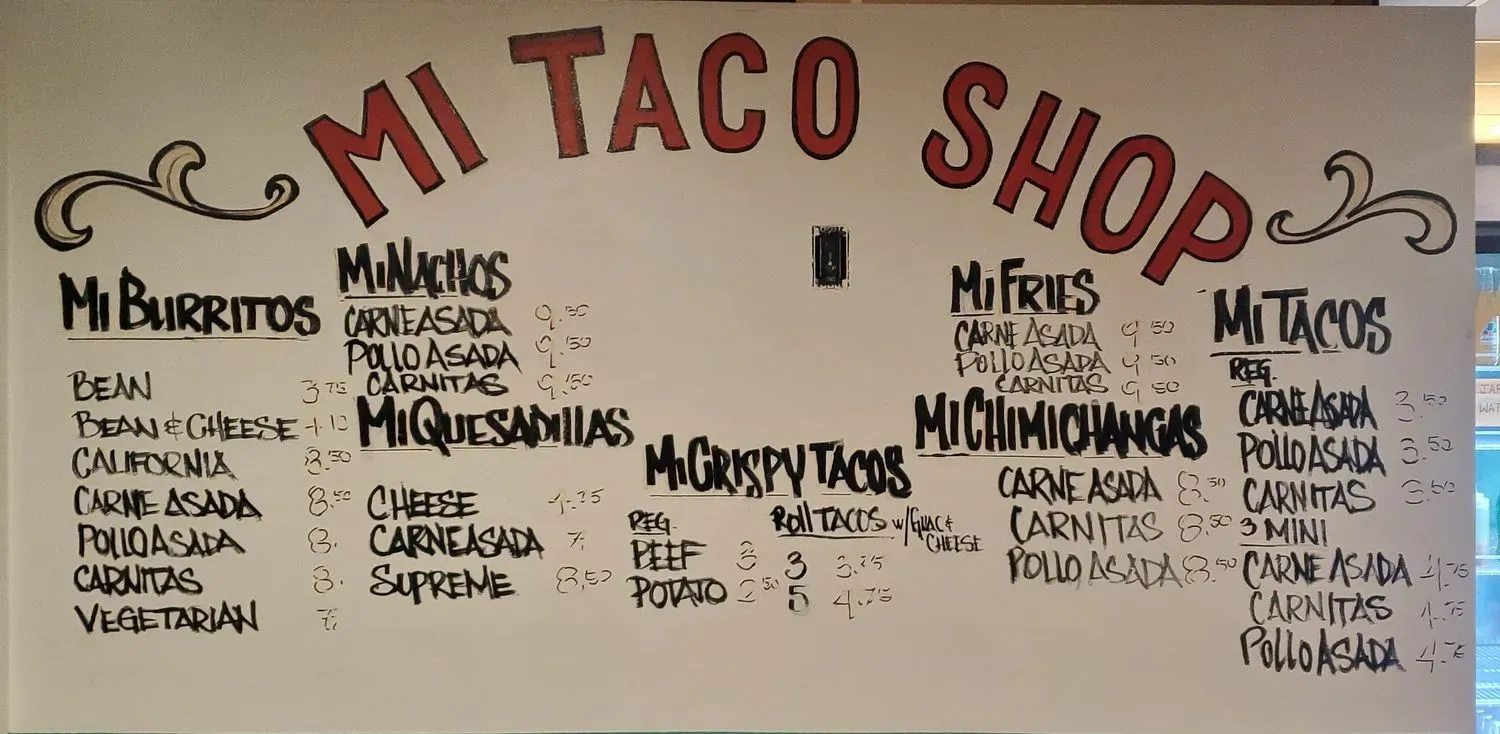 MI TACO SHOP
MI BURRITOS
BEAN 3.75
BEAN & CHEESE
CALIFORNIA 8.50
CARNE ASADA 8.50
POLLO ASADA 8.
CARNITAS 8.
VEGETARIAN 7.
MI NACHOS
CARNE ASADA 9.50
POLLO ASADA 9.50
CARNITAS 9.50
MI QUESADILLAS
CHEESE
CARNE ASADA 7.
SUPREME 8.50
MI CRISPY TACOS
REG.
BEEF 3
POTATO 2.50
ROLL TACOS w/GUAC &
CHEESE
3 3.75
5 4.75
MI FRIES
CARNE ASADA 9.50
POLLO ASADA 9.50
CARNITAS 9.50
MI CHIMICHANGAS
CARNE ASADA 8.50
CARNITAS 8.50
POLLO ASADA 8.50
MI TACOS
REG.
CARNE ASADA 3.50
POLLO ASADA 3.50
CARNITAS 3.50
3 MINI
CARNE ASADA 4.75
CARNITAS 4.75
POLLO ASADA 4.75